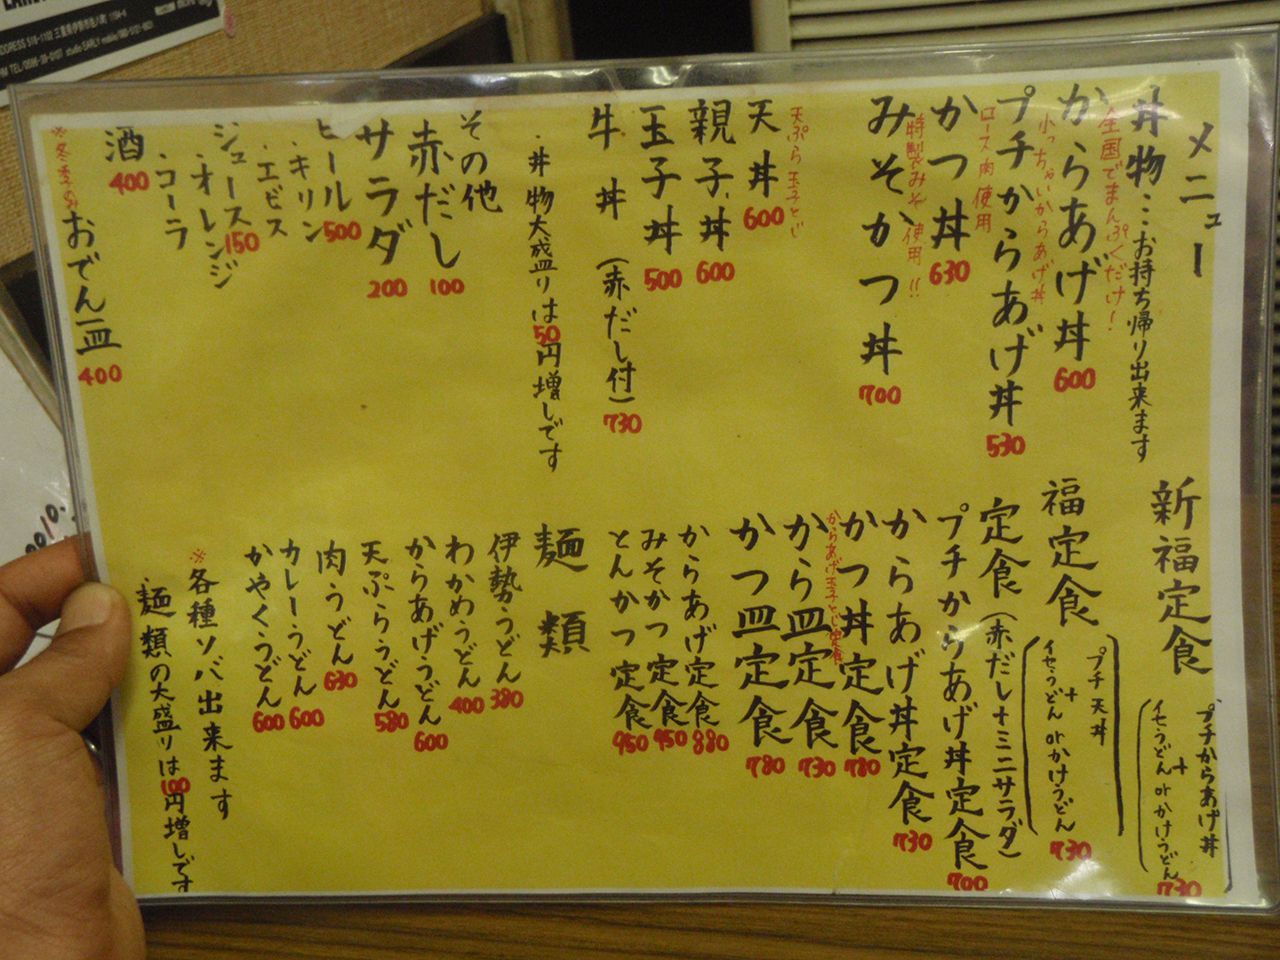 メニュー
丼物…お持ち帰り出来ます
からあげ丼 600
全国でまんぷくだけー!
プチからあげ丼 530
小っちゃいからあげ丼
かつ丼 630
ロース肉使用
みそかつ丼 700
特製みそ使用!!
天丼 600
天ぷら玉子とじ
親子丼 600
玉子丼 500
牛丼(赤だし付) 730
・丼物大盛りは50円増しです
その他
赤だし 100
サラダ 200
ビール 500
・キリン
・エビス
ジュース 150
・オレンジ
・コーラ
酒 400
※冬季のみ おでん一皿 400
新福定食
(プチからあげ丼
+
イセうどん or かけうどん) 730
福定食
(プチ天丼
+
イセうどん or かけうどん) 730
定食(赤だし+ミニサラダ)
プチからあげ丼定食 700
からあげ丼定食 730
かつ丼定食 780
から皿定食 730
からあげ玉子とじ定食
かつ皿定食 780
からあげ定食 880
みそかつ定食 950
とんかつ定食 950
麺類
伊勢うどん 380
わかめうどん 400
からあげうどん 600
天ぷらうどん 580
肉うどん 630
カレーうどん 600
かやくうどん 600
※各種ソバ出来ます
・麺類の大盛りは100円増しです